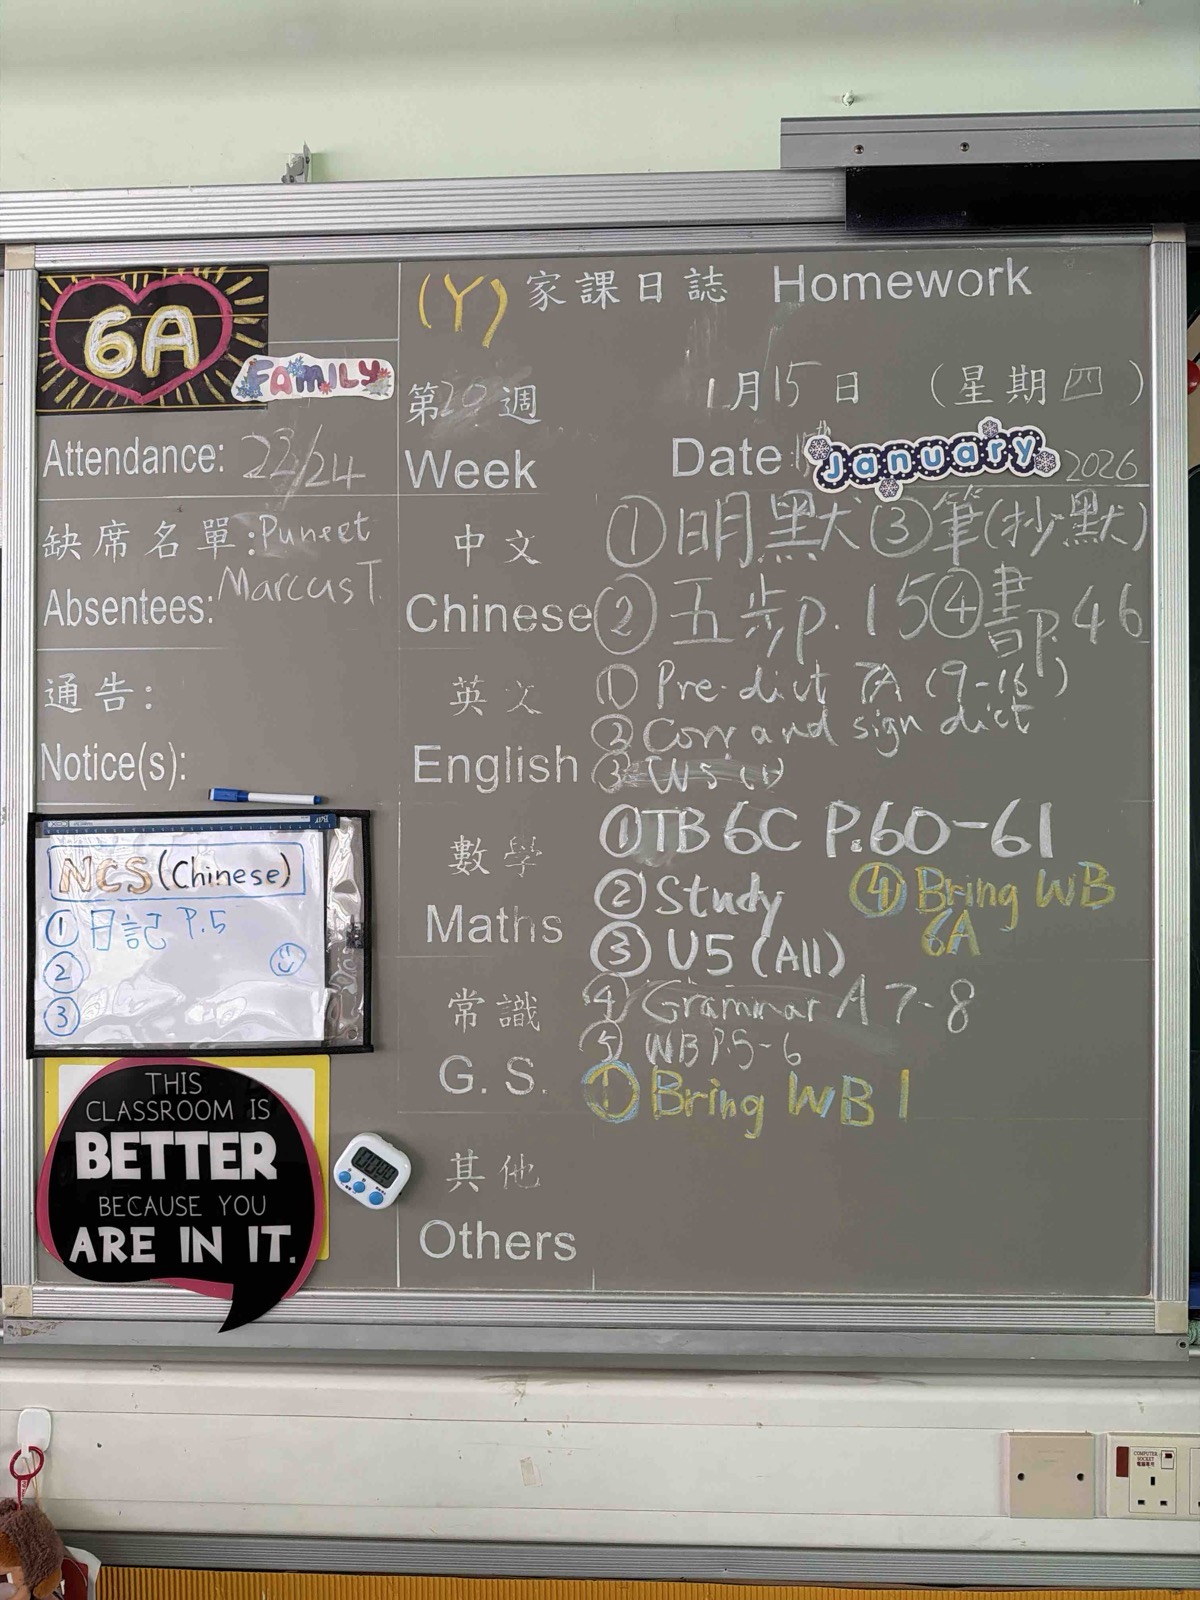 6A
FAMILY
(Y) 家課日誌 Homework
第20週
1月15日 (星期四)
Attendance: 22/24
Week
Date January 2026
缺席名單: Puneet
Absentees: Marcus T.
中文
Chinese
① 明默 ③ 筆(抄默)
② 五步p.15 ④ 書p.46
通告:
Notice(s):
英文
English
① Pre-dict 7A (9-16)
② Corr and sign dict
③ WS (1)
數學
Maths
① TB 6C P.60-61
② Study ④ Bring WB
6A
③ U5 (All)
常識
G. S.
④ Grammar A 7-8
⑤ WB P.5-6
① Bring WB 1
其他
Others
NCS (Chinese)
① 日記 P.5
②
③
THIS
CLASSROOM IS
BETTER
BECAUSE YOU
ARE IN IT.
COMPUTER
SOCKET